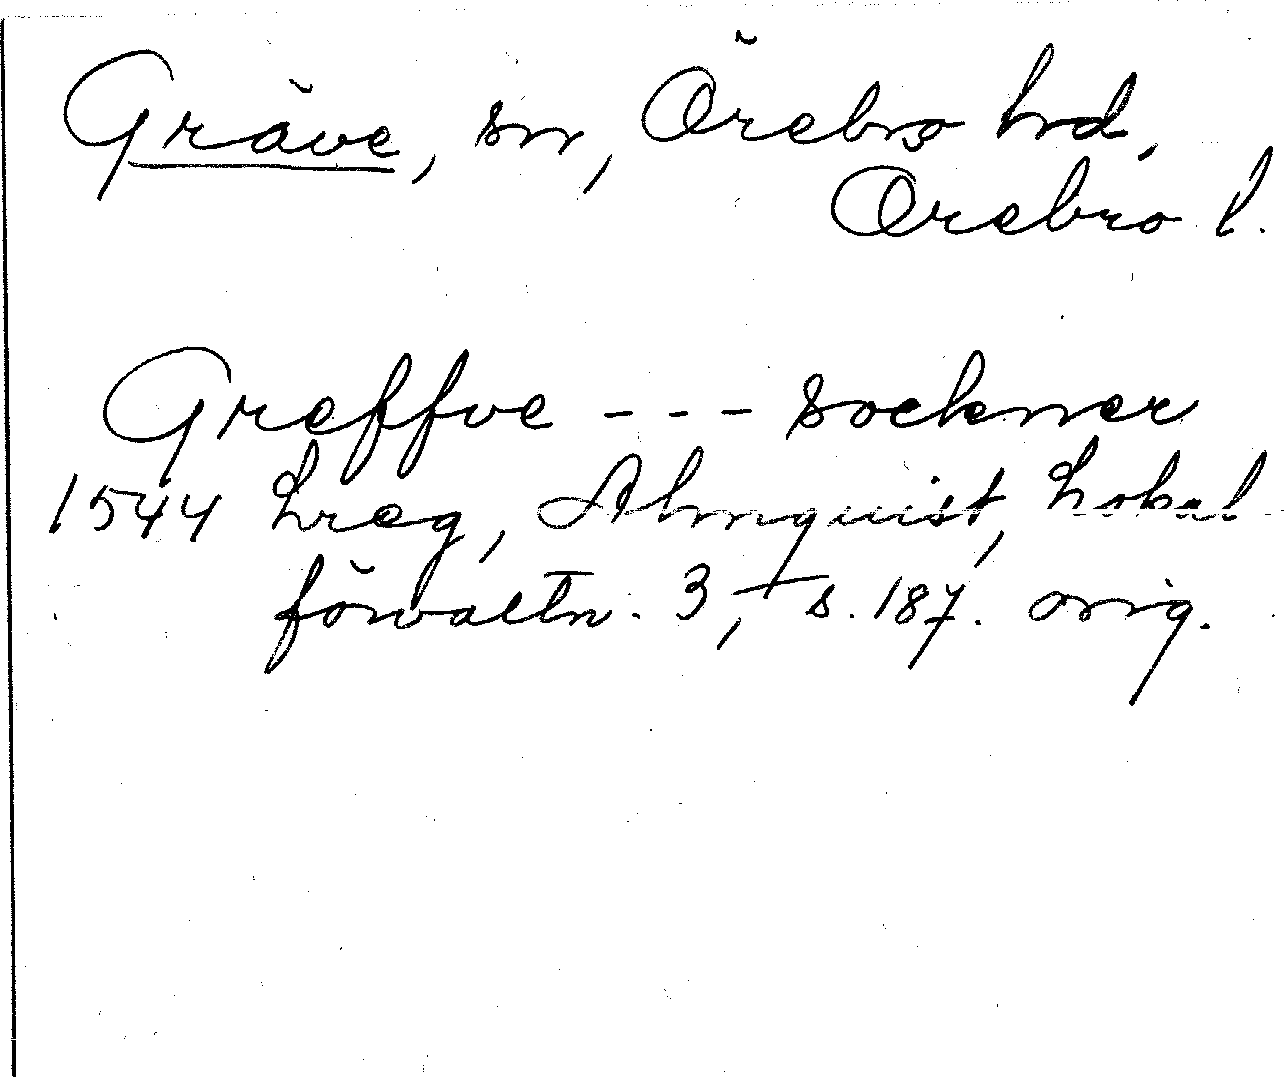 Gräve, sn, Örebro hrd,
Örebro l.
Greffve - - - sockner
1544 Lreg, Almquist, Lokal
förvaltn. 3, s. 187. orig.